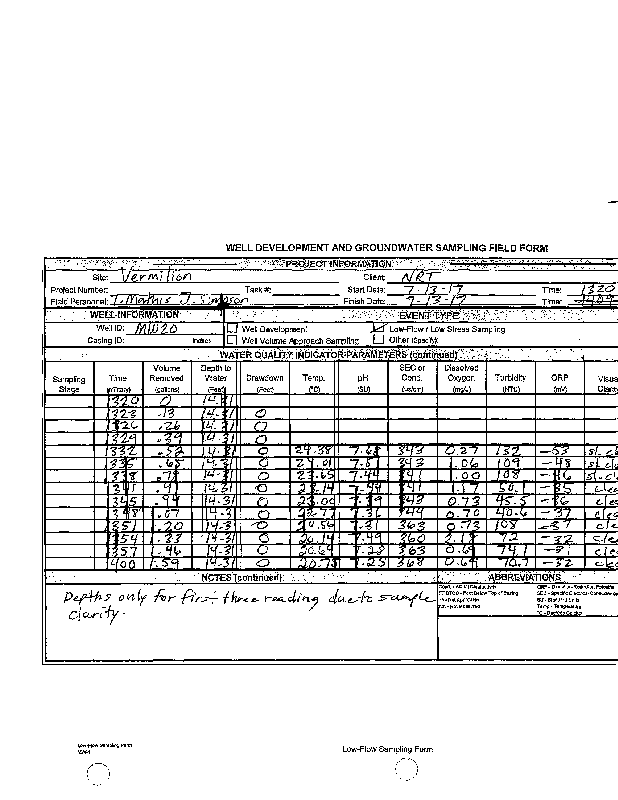 WELL DEVELOPMENT AND GROUNDWATER SAMPLING FIELD FORM
PROJECT INFORMATION
Site: Vermilion Client: NRT
Project Number: Task #: Start Date: 7-13-17 Time: 1320
Field Personnel: T. Mathis J. Simpson Finish Date: 7-13-17 Time:
WELL INFORMATION EVENT TYPE
Well ID: MW20 Well Development Low-Flow / Low Stress Sampling
Casing ID: inches Well Volume Approach Sampling Other (Specify)
WATER QUALITY INDICATOR PARAMETERS (continued)
Sampling Stage Time (military) Volume Removed (gallons) Depth to Water (Feet) Drawdown (Feet) Temp. (°C) pH (SU) SEC or Cond. Dissolved Oxygen (mg/L) Turbidity (NTU) ORP (mV) Visual Clarity
1320 0 14.31
1323 .13 14.31 0
1326 .26 14.31 0
1329 .39 14.31 0
1332 .52 14.31 0 24.38 7.68 343 0.27 132 -53 sl. cl
1335 .65 14.31 0 24.01 7.51 343 1.06 109 -48 sl. cl
1338 .78 14.31 0 23.65 7.44 341 1.00 108 -46
1341 .91 14.31 0 23.14 7.44 341 1.17 50.1 -35 clea
1345 .94 14.31 0 23.00 7.39 342 0.73 45.5 -36 clea
1348 1.07 14.31 0 22.77 7.36 344 0.70 40.6 -37 clea
1351 1.20 14.31 0 20.56 7.31 363 0.73 108 -37 clea
1354 1.33 14.31 0 20.14 7.49 360 2.18 72 -32 clea
1357 1.46 14.31 0 20.64 7.28 363 0.69 74.1 -31 clea
1400 1.59 14.31 0 20.75 7.25 368 0.64 70.7 -32 clea
NOTES (continued) ABBREVIATIONS
Depths only for first three reading due to sample
clarity.
Low-Flow Sampling Form
Low-Flow Sampling Form